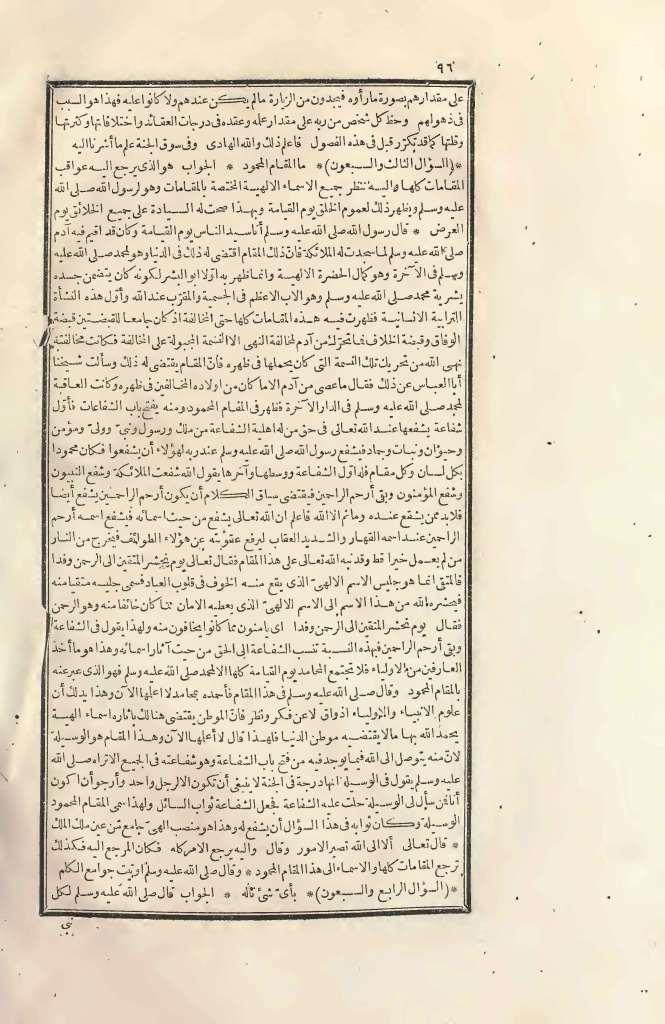 ٩٦
على مقدارهم بصورة ما رأوه فيجدون من الزيارة مالم يكن عندهم ولا كانوا عليه فهذا هو السبب
فى ذهولهم وحظ كل شخص من ربه على مقدار علمه وعقده فى درجات العقائد واختلافاتها وكثرتها
وقلتها كما قد تكرّر قبل فى هذه الفصول فاعلم ذلك والله الهادى وفى سوق الجنة علم ما أشرنا اليه
*(السؤال الثالث والسبعون)* ما المقام المحمود * الجواب هو الذى يرجع اليه عواقب
المقامات كلها واليه تنظر جميع الاسماء الالهية المختصة بالمقامات وهو لرسول الله صلى الله
عليه وسلم ويظهر ذلك لعموم الخلق يوم القيامة وبهذا صحت له السيادة على جميع الخلائق يوم
العرض * قال رسول الله صلى الله عليه وسلم أنا سيد الناس يوم القيامة وكان قد اقيم فيه آدم
صلى الله عليه وسلم لما سجدت له الملائكة فانّ ذلك المقام اقتضى له ذلك فى الدنيا وهو لمحمد صلى الله عليه
وسلم فى الآخرة وهو كمال الحضرة الالهية وانما ظهر به اوّلا ابو البشر لكونه كان يتضمن جسده
بشرية محمد صلى الله عليه وسلم وهو الاب الاعظم فى الجسمية والمقرّب عند الله واوّل هذه النشأة
الترابية الانسانية فظهرت فيه هذه المقامات كلها حتى المخالفة اذ كان جامعا للقبضتين قبضة
الوفاق وقبضة الخلاف فما تحرّك من آدم لمخالفة النهى الا النسمة المجبولة على المخالفة فكانت مخالفته
نهى الله من تحريك تلك النسمة التى كان يحملها فى ظهره فانّ المقام يقتضى له ذلك وسألت شيخنا
أبا العباس عن ذلك فقال ما عصى من آدم الا ما كان من اولاده المخالفين فى ظهره وكانت العاقبة
لمحمد صلى الله عليه وسلم فى الدار الآخرة فظهر فى المقام المحمود ومنه يفتح باب الشفاعات فأوّل
شفاعة يشفعها عند الله تعالى فى حق من له اهلية الشفاعة من ملك ورسول ونبىّ وولىّ ومؤمن
وحيوان ونبات وجماد فيشفع رسول الله صلى الله عليه وسلم عند ربه لهؤلاء أن يشفعوا فكان محمودا
بكل لسان وكل مقام فله اوّل الشفاعة ووسطها وآخرها يقول الله شفعت الملائكة وشفع النبيون
وشفع المؤمنون وبقى أرحم الراحمين فيقتضى سياق الكلام أن يكون أرحم الراحمين يشفع أيضا
فلا بد ممن يشفع عنده وما ثم الا الله فاعلم ان الله تعالى يشفع من حيث اسمائه فيشفع اسمه أرحم
الراحمين عند اسمه القهار والشديد العقاب ليرفع عقوبته عن هؤلاء الطوائف فيخرج من النار
من لم يعمل خيرا قط وقد نبه الله تعالى على هذا المقام فقال تعالى يوم نحشر المتقين الى الرحمن وفدا
فالمتقى انما هو جليس الاسم الالهىّ الذى يقع منه الخوف فى قلوب العباد فسمى جليسه متقيا منه
فيحشره الله من هذا الاسم الى الاسم الالهىّ الذى يعطيه الامان مما كان خائفا منه وهو الرحمن
فقال يوم نحشر المتقين الى الرحمن وفدا اى يأمنون مما كانوا يخافون منه ولهذا يقول فى الشفاعة
وبقى أرحم الراحمين فبهذه النسبة تنسب الشفاعة الى الحق من حيث آثار اسمائه وهذا هو مأخذ
العارفين من الاولياء فلا تجتمع المحامد يوم القيامة كلها الا لمحمد صلى الله عليه وسلم فهو الذى عبر عنه
بالمقام المحمود وقال صلى الله عليه وسلم فى هذا المقام فأحمده بمحامد لا اعلمها الآن وهذا يدلك أن
علوم الانبياء والاولياء اذواق لا عن فكر ونظر فانّ الموطن يقتضى هنالك بآثاره اسماء الهية
يحمد الله بها مالا يقتضيه موطن الدنيا فلهذا قال لا أعلمها الآن وهذا المقام هو الوسيلة
لانّ منه يتوصل الى الله فيما يوجد فيه من فتح باب الشفاعة وهو شفاعته فى الجميع الا تراه صلى الله
عليه وسلم يقول فى الوسيلة انها درجة فى الجنة لا ينبغى أن تكون الا لرجل واحد وأرجو أن اكون
أنا فمن سأل لى الوسيلة حلت عليه الشفاعة فجعل الشفاعة ثواب السائل ولهذا سمى المقام المحمود
الوسيلة وكان ثوابه فى هذا السؤال أن يشفع له وهذا هو منصب الهىّ جامع من عين ملك الملك
* قال تعالى ألا الى الله تصير الامور وقال واليه يرجع الامر كله فكان المرجع اليه فكذلك
ترجع المقامات كلها والاسماء الى هذا المقام المحمود * وقال صلى الله عليه وسلم اوتيت جوامع الكلم
*(السؤال الرابع والسبعون)* بأىّ شئ ناله * الجواب قال صلى الله عليه وسلم لكل
نبى